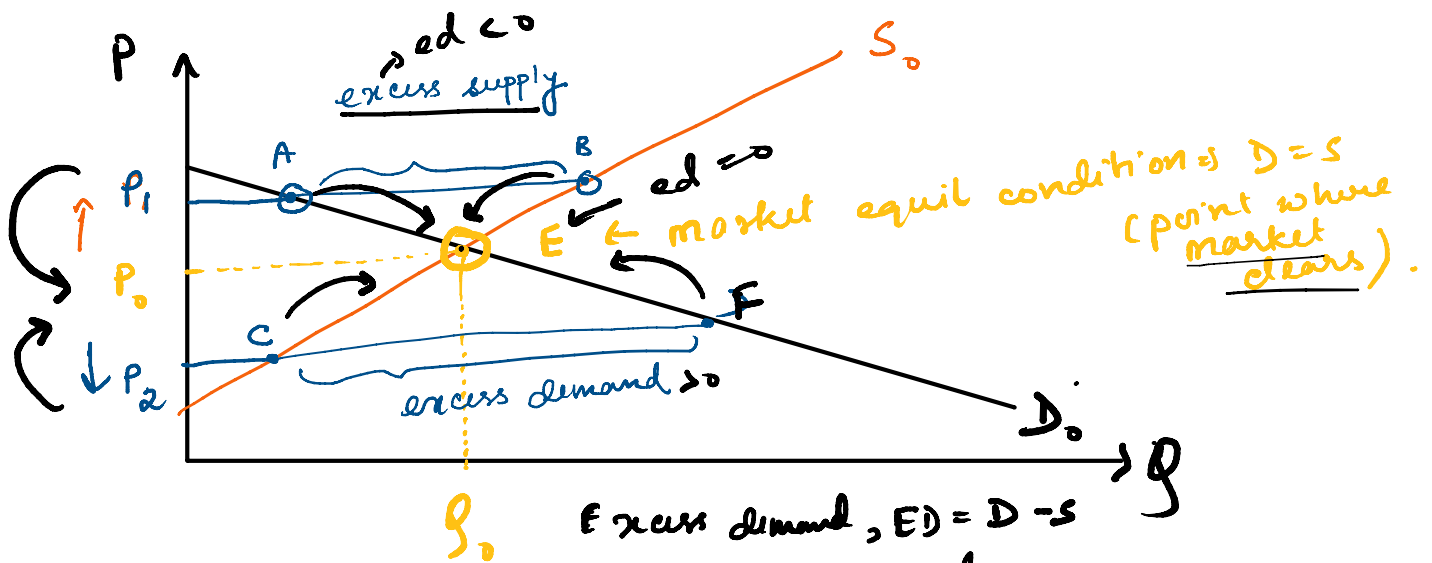 P
ed < 0
excess supply
S₀
A
B
ed = 0
P₁
E ← market equil condition ⇒ D = S
(point where
market
clears).
P₀
C
F
P₂
excess demand > 0
D₀
Q
Q₀
Excess demand, ED = D - S